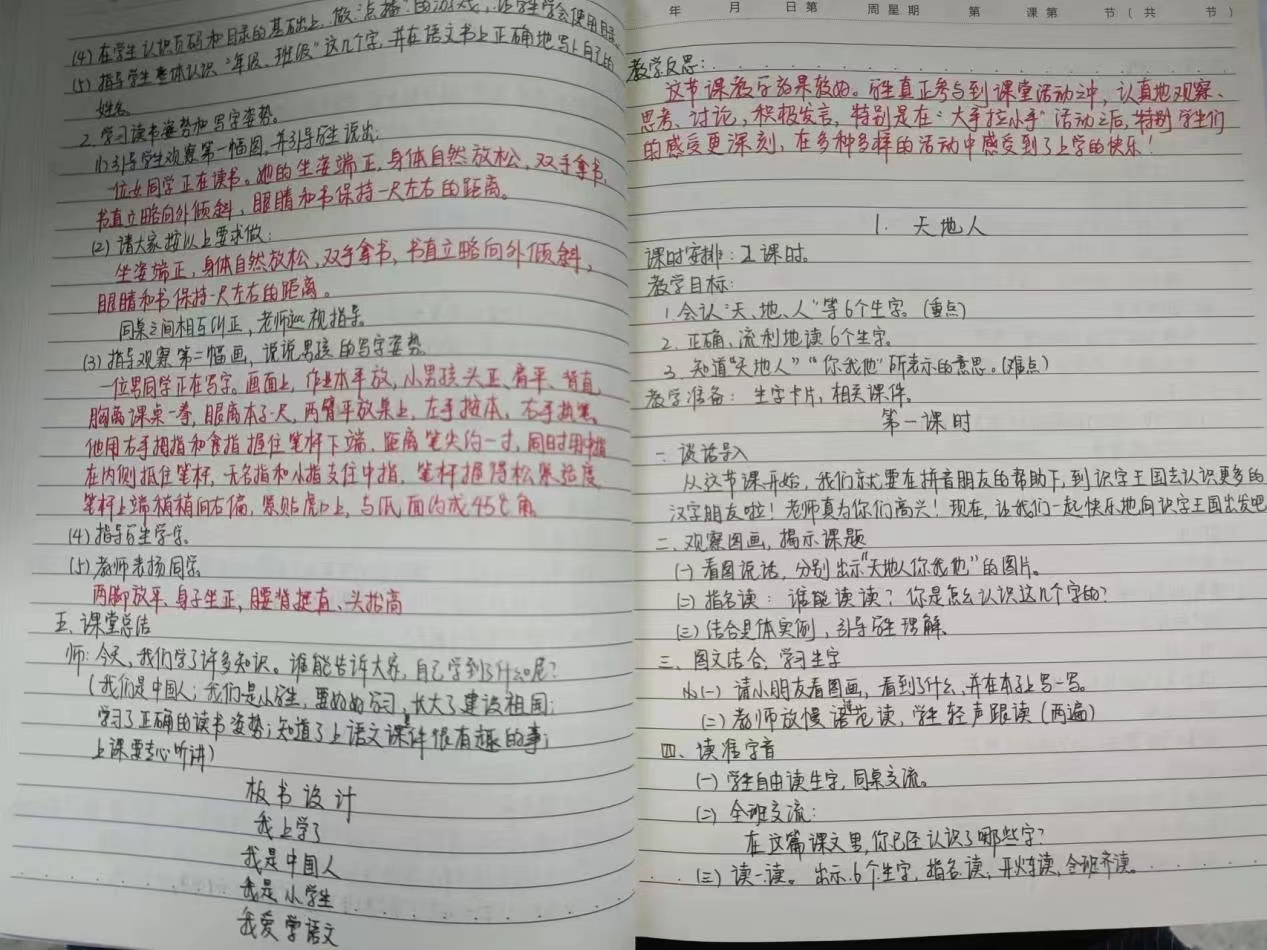 (4) 在学生认识页码和目录的基础上,做"点播"的游戏,让学生学会使用目录。
(5) 指导学生整体认识"年级、班级"这几个字,并在语文书上正确地写上自己的
姓名。
2. 学习读书姿势和写字姿势。
(1) 引导学生观察第一幅图,并引导学生说出:
一位女同学正在读书。她的坐姿端正,身体自然放松,双手拿书,
书直立略向外倾斜,眼睛和书保持一尺左右的距离。
(2) 请大家按以上要求做:
坐姿端正,身体自然放松,双手拿书,书直立略向外倾斜,
眼睛和书保持一尺左右的距离。
同桌之间相互纠正,老师巡视指导。
(3) 指导观察第二幅画,说说男孩的写字姿势。
一位男同学正在写字。画面上,作业本平放,小男孩头正、肩平、背直,
胸离课桌一拳,眼离本子一尺,两臂平放桌上,左手按本,右手执笔。
他用右手拇指和食指握住笔杆下端,距离笔尖约一寸,同时用中指
在内侧抵住笔杆,无名指和小指支住中指,笔杆握得松紧适度
笔杆上端稍稍向右偏,紧贴虎口上,与纸面约成45°角。
(4) 指导学生学字。
(5) 教师表扬同学。
两脚放平、身子坐正,腰背挺直、头抬高
五、课堂总结
师:今天,我们学了许多知识。谁能告诉大家,自己学到了什么呢?
(我们是中国人;我们是小学生,要好好学习,长大了建设祖国;
学习了正确的读书姿势;知道了上语文课件很有趣的事;
上课要专心听讲)
板书设计
我上学了
我是中国人
我是小学生
我爱学语文
年 月 日第 周星期 第 课第 节(共 节)
教学反思:
这节课教学效果较好。学生真正参与到课堂活动之中,认真地观察、
思考、讨论,积极发言,特别是在"大手拉小手"活动之后,特别学生们
的感受更深刻,在多种多样的活动中感受到了上学的快乐!
1. 天地人
课时安排:2课时。
教学目标:
1. 会认"天、地、人"等6个生字。(重点)
2. 正确、流利地读6个生字。
3. 知道"天地人""你我他"所表示的意思。(难点)
教学准备:生字卡片,相关课件。
第一课时
一、谈话导入
从这节课开始,我们就要在拼音朋友的帮助下,到识字王国去认识更多的
汉字朋友啦!老师真为你们高兴!现在,让我们一起快乐地向识字王国出发吧
二、观察图画,揭示课题
(一) 看图说话,分别出示"天地人你我他"的图片。
(二) 指名读:谁能读读?你是怎么认识这几个字的?
(三) 结合具体实例,引导学生理解。
三、图文结合,学习生字
(一) 请小朋友看图画,看到了什么,并在本子上写一写。
(二) 教师放慢语速范读,学生轻声跟读(两遍)
四、读准字音
(一) 学生自由读生字,同桌交流。
(二) 全班交流:
在这篇课文里,你已经认识了哪些字?
(三) 读一读。出示6个生字,指名读,开火车读,全班齐读。